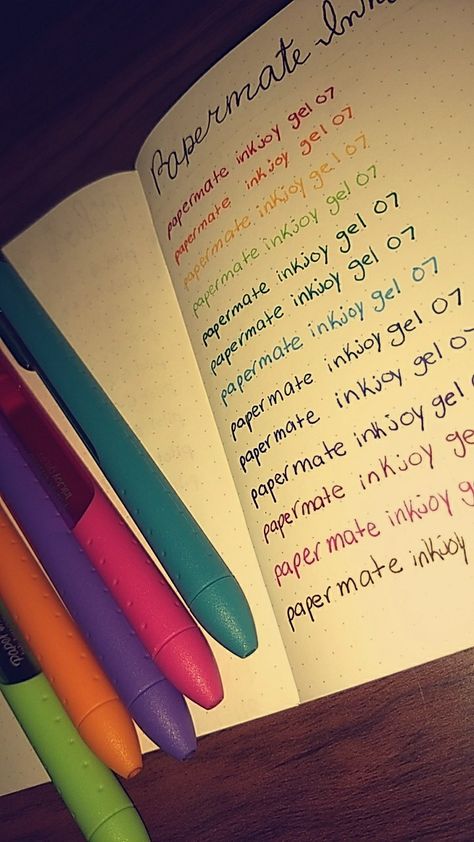 Papermate Ink
papermate inkjoy gel 07
papermate inkjoy gel 07
papermate inkjoy gel 07
papermate inkjoy gel 07
papermate inkjoy gel 07
papermate inkjoy gel 07
papermate inkjoy gel 07
papermate inkjoy gel 07
papermate inkjoy gel 07
papermate inkjoy gel
papermate inkjoy ge
papermate inkjoy g
papermate inkjoy